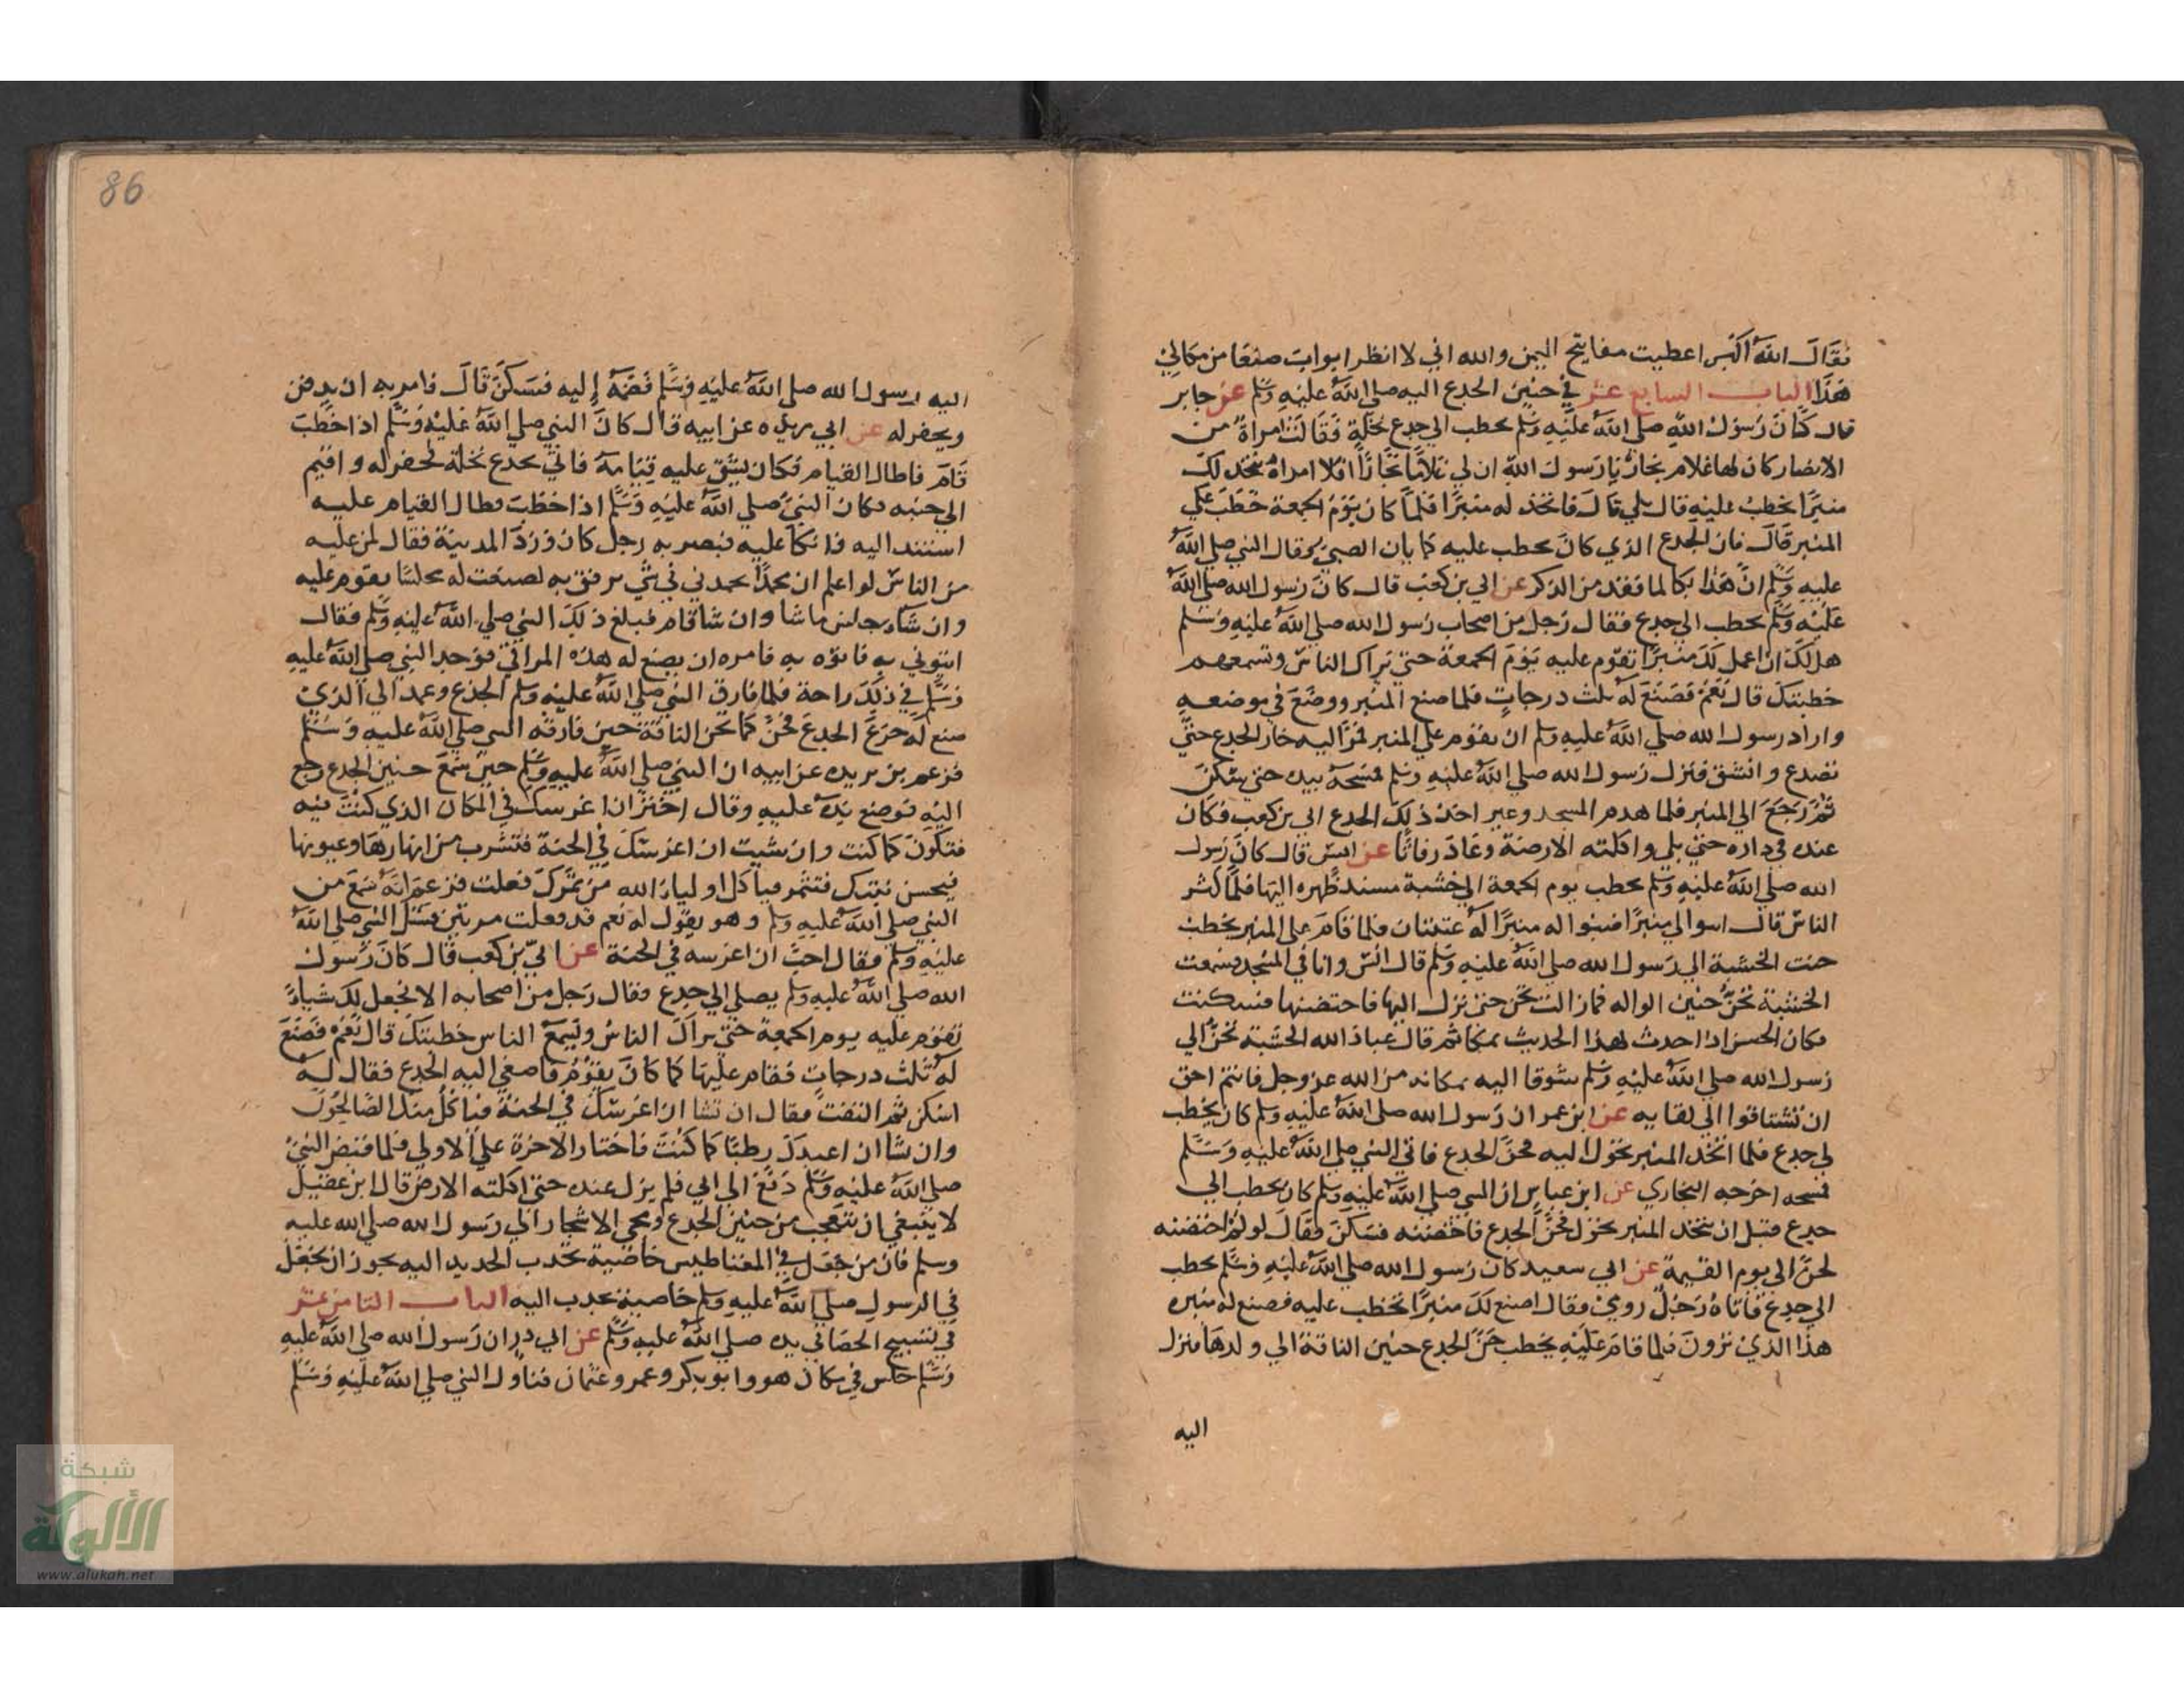 فقال الله أكبر اعطيت مفاتيح اليمن والله اني لا انظر ابواب صنعا من مكاني
هذا الباب السابع عشر في حنين الجدع اليه صلى الله عليه وسلم عن جابر
قال كان رسول الله صلى الله عليه وسلم يخطب الى جدع نخلة فقالت امراة من
الانصار كان لها غلام نجار يا رسول الله ان لي غلاما نجارا افلا امره يتخد لك
منبرا تخطب عليه قال بلي قال فاتخذ له منبرا فلما كان يوم الجمعة خطب علي
المنبر قال فان الجدع الذي كان يخطب عليه كما يان الصبي فقال النبي صلى الله
عليه وسلم ان هذا بكا لما فقد من الذكر عن ابي بن كعب قال كان رسول الله صلى الله
عليه وسلم يخطب الي جدع فقال رجل من اصحاب رسول الله صلى الله عليه وسلم
هل لك ان اعمل لك منبرا تقوم عليه يوم الجمعة حتي يراك الناس وتسمعهم
خطبتك قال نعم فصنع له ثلث درجات فلما صنع المنبر ووضع في موضعه
واراد رسول الله صلى الله عليه وسلم ان يقوم علي المنبر فمر اليه خار الجدع حتي
تصدع وانشق فنزل رسول الله صلى الله عليه وسلم فمسحه بيده حتي سكن
ثم رجع الي المنبر فلما هدم المسجد وغير اخذ ذلك الجدع ابي بن كعب فكان
عنده في داره حتي بلي واكلته الارضة وعاد رفاتا عن انس قال كان رسول
الله صلى الله عليه وسلم يخطب يوم الجمعة الي خشبة مسند ظهره اليها فلما كثر
الناس قال ابنوا لي منبرا فبنوا له منبرا له عتبتان فلما قام على المنبر يخطب
حنت الخشبة الي رسول الله صلى الله عليه وسلم قال انس وانا في المسجد فسمعت
الخشبة تحن حنين الواله فما زالت تحن حتي نزل اليها فاحتضنها فسكنت
فكان الحسن اذا حدث لهذا الحديث بكا ثم قال عباد الله الخشبة تحن الي
رسول الله صلى الله عليه وسلم شوقا اليه بمكانه من الله عز وجل فانتم احق
ان تشتاقوا الي لقايه عن ابن عمر ان رسول الله صلى الله عليه وسلم كان يخطب
لي جدع فلما اتخد المنبر تحول اليه فحن الجدع فاتي النبي صلى الله عليه وسلم
فمسحه اخرجه البخاري عن ابن عباس ان النبي صلى الله عليه وسلم كان يخطب الي
جدع قبل ان يتخد المنبر فحن الجدع فاحتضنه فسكن وقال لو لم احتضنه
لحن الى يوم القيمة عن ابي سعيد كان رسول الله صلى الله عليه وسلم يخطب
الي جدع فاتاه رجل رومي فقال اصنع لك منبرا تخطب عليه فصنع له منبره
هذا الذي ترون فلما قام عليه يخطب حن الجدع حنين الناقة الي ولدها فنزل
اليه
86
اليه رسول الله صلى الله عليه وسلم فضمه إليه فسكن قال فامر به ان يدفن
ويحفر له عن ابي بريده عن ابيه قال كان النبي صلى الله عليه وسلم اذا خطب
قام فاطال القيام فكان يشق عليه قيامه فاتي بجدع نخلة فحفر له واقيم
الي جنبه فكان النبي صلى الله عليه وسلم اذا خطب وطال القيام عليه
استند اليه فاتكا عليه فبصر به رجل كان ورد المدينة فقال لمن عليه
من الناس لو اعلم ان محمدا يحمدني في شي يرفق به لصنعت له مجلسا يقوم عليه
وان شا جلس ما شا وان شا قام فبلغ ذلك النبي صلى الله عليه وسلم فقال
ايتوني به فاتوه به فامره ان يصنع له هذه المراقي فوجد النبي صلى الله عليه
وسلم في ذلك راحة فلما فارق النبي صلى الله عليه وسلم الجذع وعمد الي الذي
صنع له جزع الجدع فحن كما تحن الناقة حين فارقه النبي صلى الله عليه وسلم
فزعم بن بريده عن ابيه ان النبي صلى الله عليه وسلم حين سمع حنين الجدع رجع
اليه فوضع يده عليه وقال اختر ان اغرسك في المكان الذي كنت فيه
فتكون كما كنت وان شيت ان اغرسك في الجنة فتشرب من انهارها وعيونها
فيحسن نبتك فتثمر فياكل اولياء الله من ثمرك فعلت فزعم انه سمع من
النبي صلى الله عليه وسلم وهو يقول له نعم قد فعلت مرتين فسئل النبي صلى الله
عليه وسلم فقال احب ان اغرسه في الجنة عن ابي بن كعب قال كان رسول
الله صلى الله عليه وسلم يصلي الي جدع فقال رجل من اصحابه الا نجعل لك شياء
تقوم عليه يوم الجمعة حتي يراك الناس وتسمع الناس خطبتك قال نعم فصنع
له ثلث درجات فقام عليها كما كان يقوم فاصغي اليه الجدع فقال له
اسكن ثم التفت فقال ان تشا ان اغرسك في الجنة فياكل منك الصالحون
وان شا ان اعيدك رطبا كما كنت فاختار الاخرة علي الاولي فلما قبض النبي
صلى الله عليه وسلم دفع الي ابي فلم يزل عنده حتي اكلته الارض قال ابن عقيل
لا ينبغي ان نتعجب من حنين الجدع ومجي الاشجار الي رسول الله صلى الله عليه
وسلم فان من جعل في المغناطيس خاصية تجدب الحديد اليه يجوز ان يجعل
في الرسول صلى الله عليه وسلم خاصية تجدب اليه الباب الثامن عشر
في تسبيح الحصا في يده صلى الله عليه وسلم عن ابي در ان رسول الله صلى الله عليه
وسلم جلس في مكان هو وابو بكر وعمر وعثمان فتناول النبي صلى الله عليه وسلم
شبكة
الألوكة
www.alukah.net